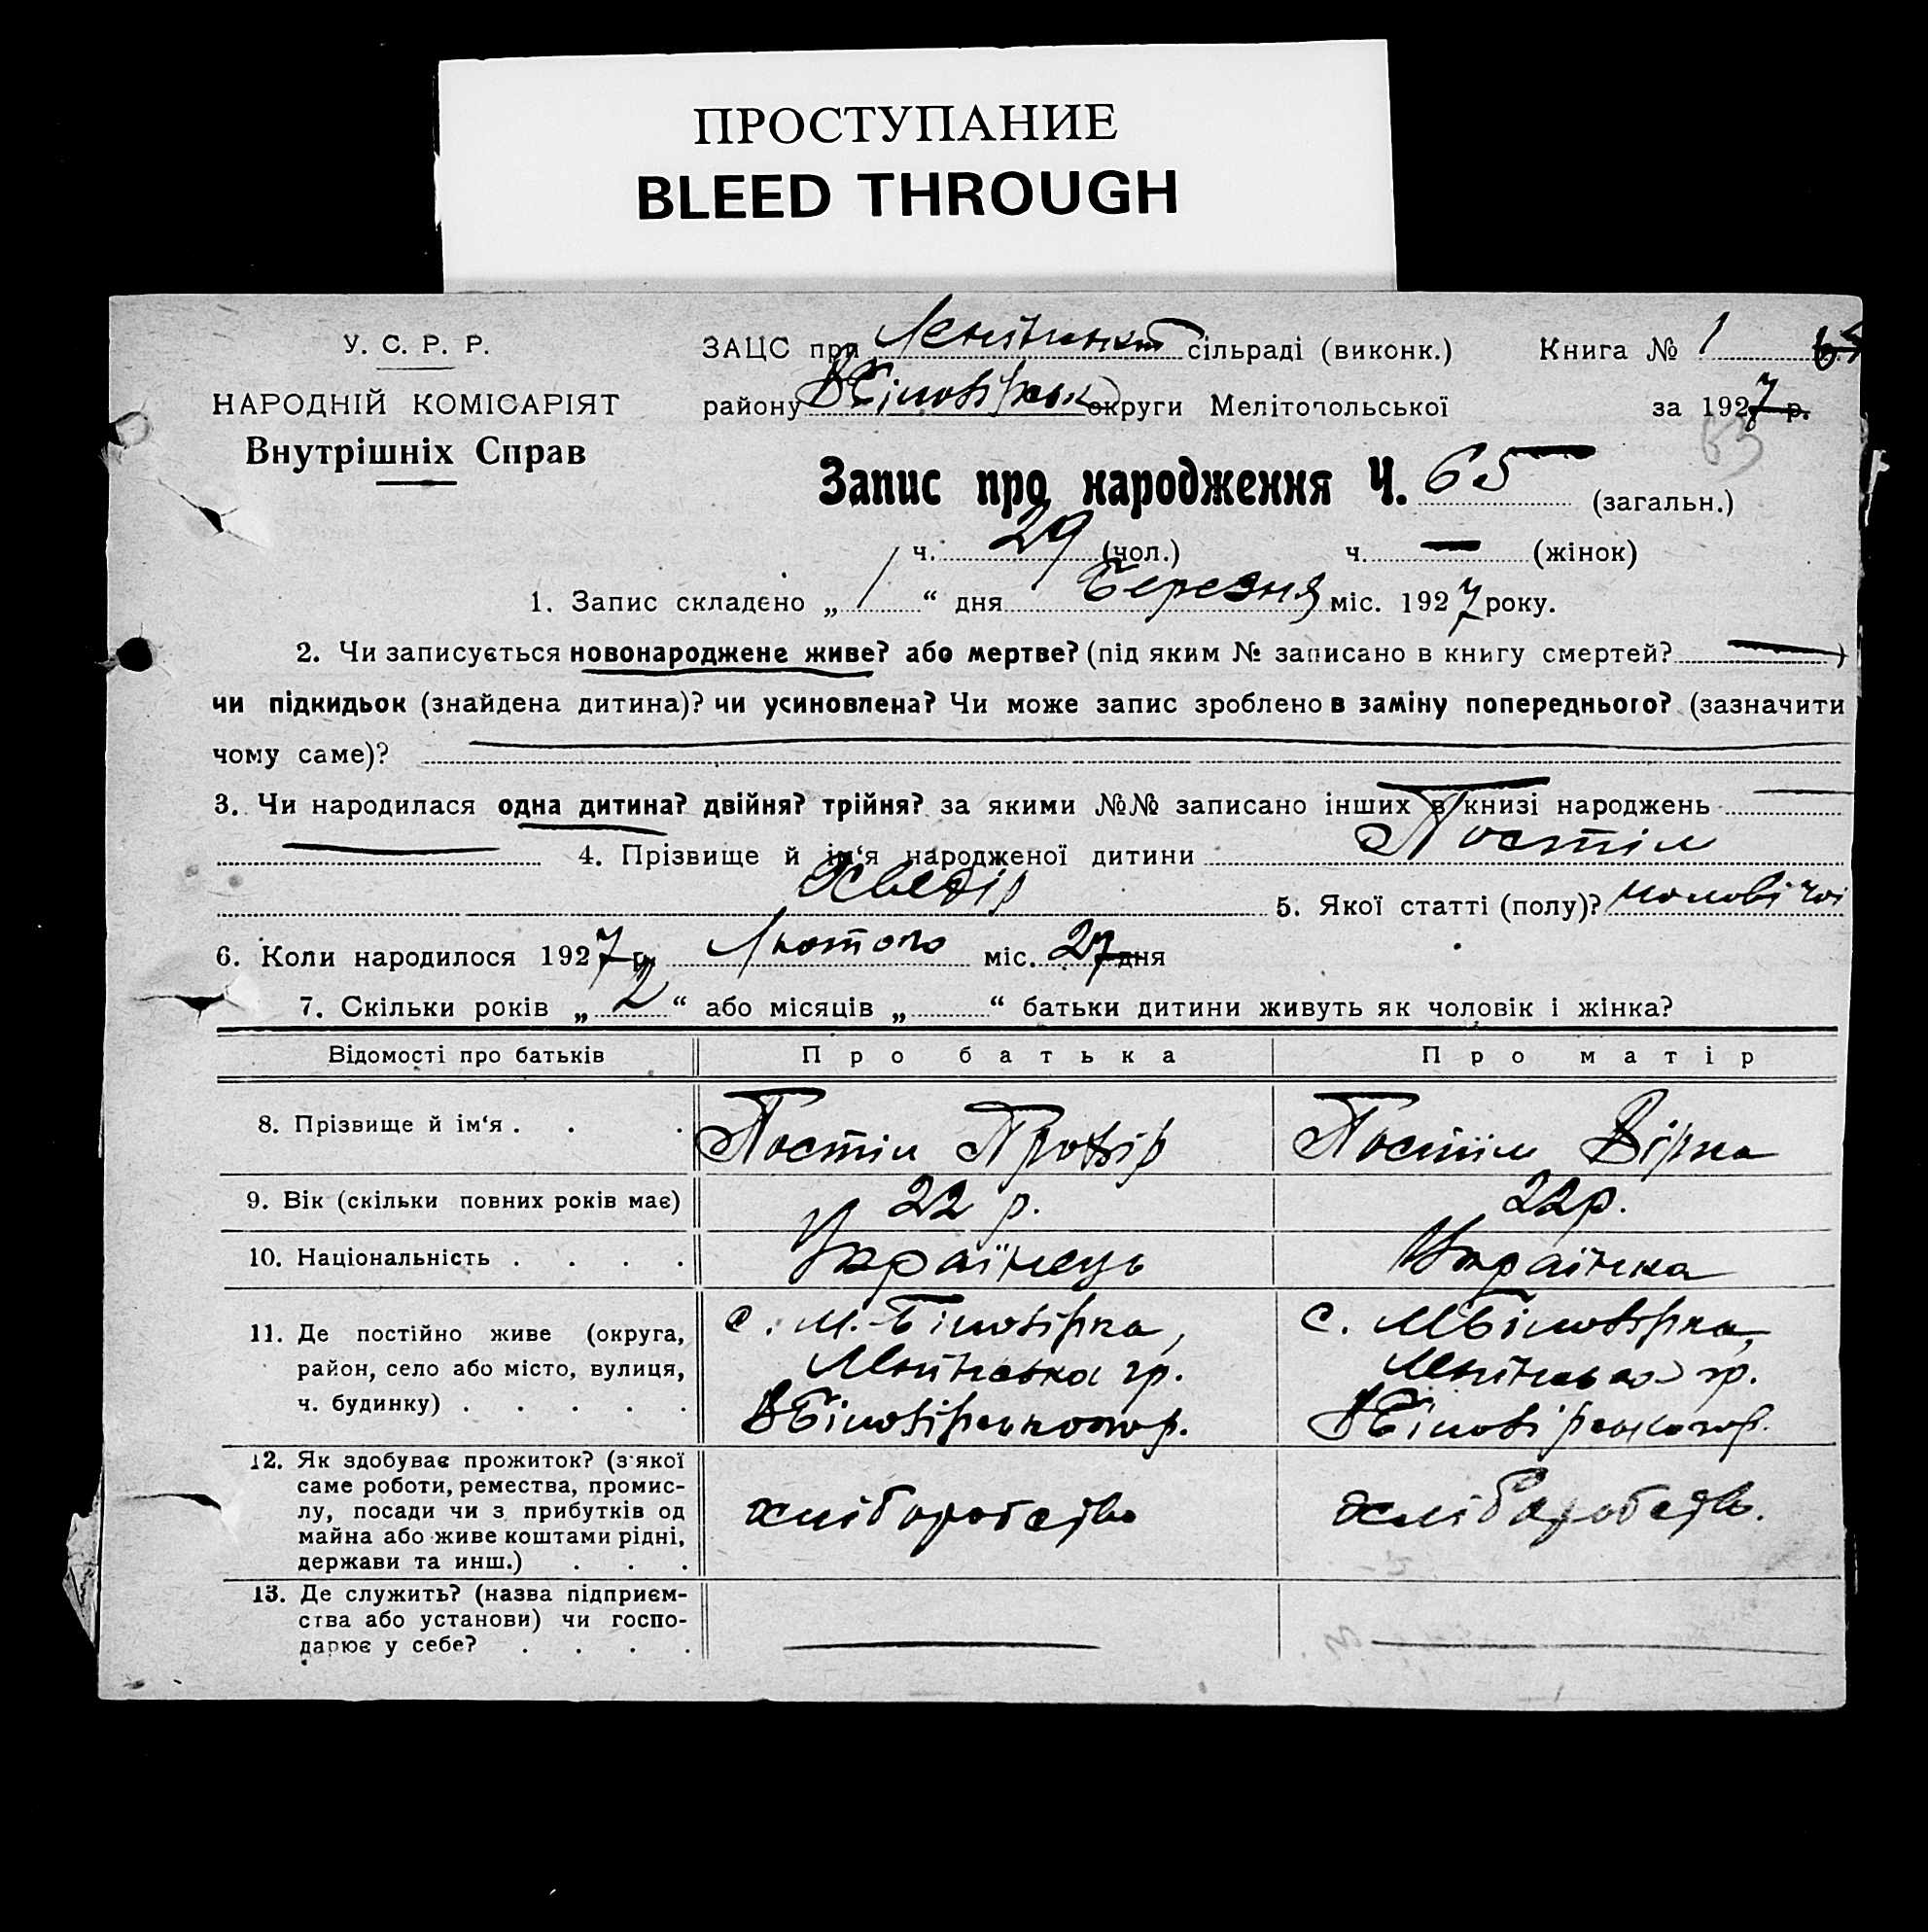 ПРОСТУПАНИЕ
BLEED THROUGH
У. С. Р. Р.
НАРОДНІЙ КОМІСАРІЯТ
Внутрішніх Справ
ЗАЦС при сільраді (виконк.) Книга № 1
району ВБіловірськ округи Мелітопольської за 1927 р.
63
Запис про народження Ч. 65 (загальн.)
ч. 29 (чол.) ч. — (жінок)
1. Запис складено „ 1 “ дня Березня міс. 1927 року.
2. Чи записується новонароджене живе? або мертве? (під яким № записано в книгу смертей? — )
чи підкидьок (знайдена дитина)? чи усиновлена? Чи може запис зроблено в заміну попереднього? (зазначити
чому саме)?
3. Чи народилася одна дитина? двійня? трійня? за якими №№ записано інших в книзі народжень —
— 4. Прізвище й ім‘я народженої дитини Постіл
5. Якої статті (полу)? чоловічої
6. Коли народилося 1927 р. Лютого міс. 27 дня
7. Скільки років „ 2 “ або місяців „ “ батьки дитини живуть як чоловік і жінка?
Відомості про батьків Про батька Про матір
8. Прізвище й ім‘я . . . Постіл Постіл
9. Вік (скільки повних років має) 22 р. 22 р.
10. Національність . . . . Українець Українка
11. Де постійно живе (округа, район, село або місто, вулиця, ч. будинку) . . . . .
с. М.-Біловірка, с. МБіловірка,
Менінська гр. Менінська гр.
12. Як здобуває прожиток? (з якої
саме роботи, ремества, промис-
лу, посади чи з прибутків од
майна або живе коштами рідні,
держави та инш.) . . .
хліборобство хліборобств.
13. Де служить? (назва підприєм-
ства або установи) чи госпо-
дарює у себе? . . . .